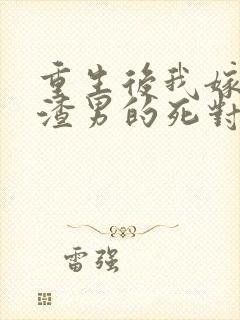 重生後我嫁
渣男的死對
雷强